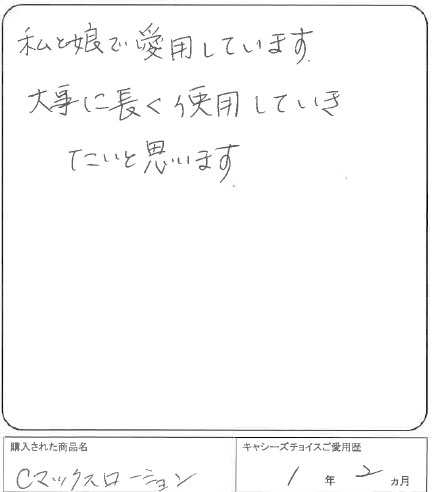 私と娘で愛用しています.
大事に長く使用していき
たいと思います.
購入された商品名
Cマックスローション
キャシーズチョイスご愛用歴
1年2ヵ月